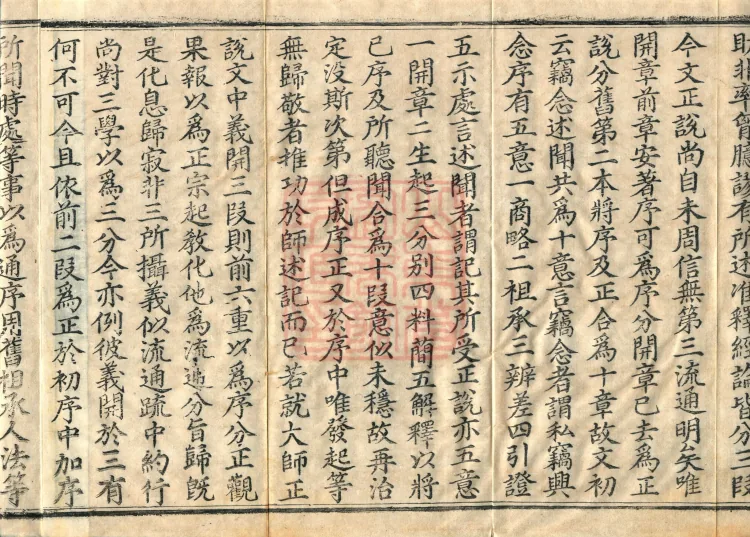 財非率曾臆設有所述准釋經論皆分三段
今文正說尚自未周信無第三流通明矣唯
開章前章安著序可為序分開章已去為正
說分舊第二本將序及正合為十章故文初
云竊念述聞共為十意言竊念者謂私竊興
念序有五意一商略二祖承三辨差四引證
五示處言述聞者謂記其所受正說亦五意
一開章二生起三分別四料蕳五解釋以將
已序及所聽聞合為十段意似未穩故再治
定没斯次第但成序正又於序中唯發起等
無歸敬者推功於師述記而已若就大師正
說文中義開三段則前六重以為序分正觀
果報以為正宗起教化他為流通分旨歸既
是化息歸寂非三所攝義似流通疏中約行
尚對三學以為三分今亦例彼義開於三有
何不可今且依前二段為正於初序中加序
所聞時處等事以為通序用舊祖承人法等